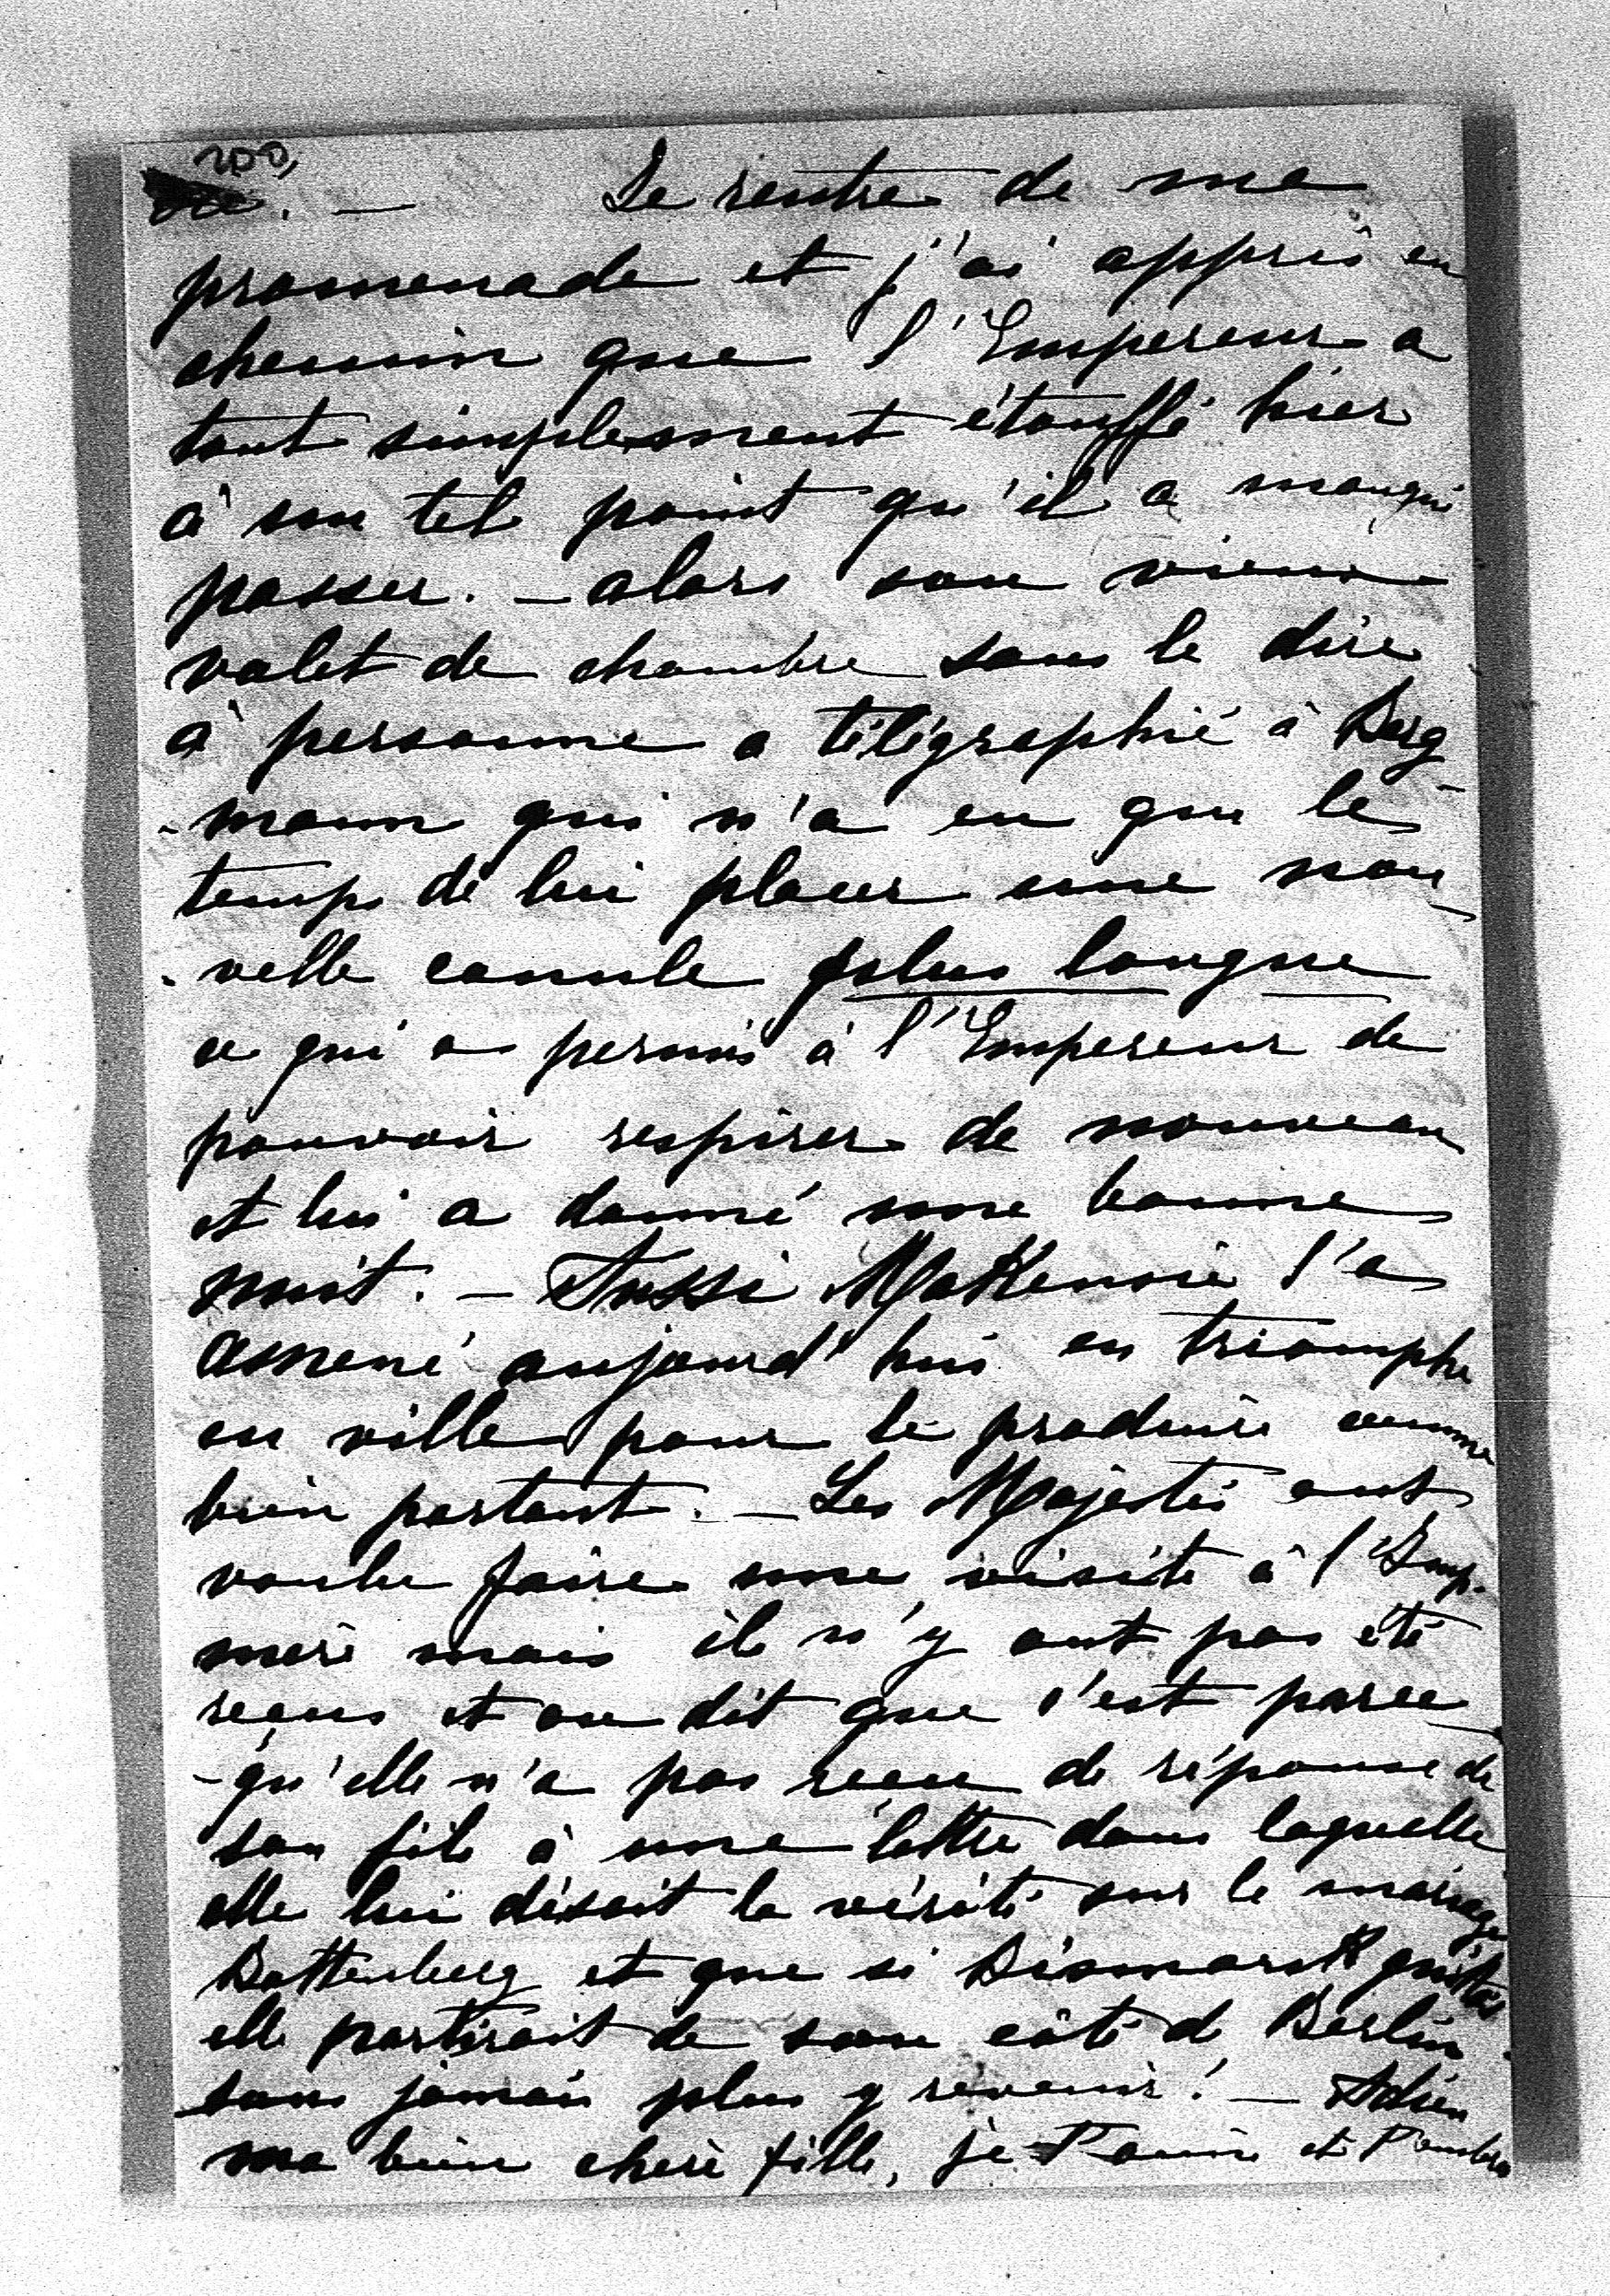 200,
. — Je rentre de ma
promenade et j'ai appris en
chemin que l'Empereur a
tout simplement étouffé hier
à un tel point qu'il a manqué
passer. — alors son vieux
valet de chambre sans le dire
à personne a télégraphié à Berg-
-mann qui n'a eu que le
temps de lui placer une nou-
-velle canule plus longue
ce qui a permis à l'Empereur de
pouvoir respirer de nouveau
et lui a donné une bonne
nuit. — Aussi MaKenzie l'a
amené aujourd'hui en triomphe
en ville pour le produire comme
bien portant. — Les Majestés ont
voulu faire une visite à l'Imp.
mère mais ils n'y ont pas été
reçus et on dit que c'est parce-
-qu'elle n'a pas reçu de réponse de
son fils à une lettre dans laquelle
elle lui disait la vérité sur le mariage
Battenberg et que si Bismarck quitte
elle partirait de son côté de Berlin
sans jamais plus y revenir! — Adieu
ma bien chère fille, je t'aime et t'embra